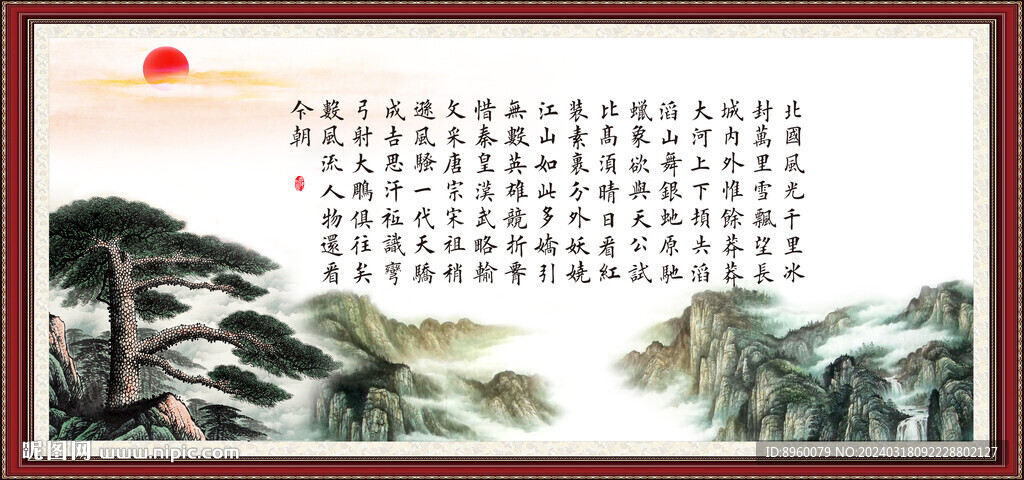 北國風光千里冰
封萬里雪飄望長
城內外惟餘莽莽
大河上下頓失滔
滔山舞銀蛇原馳
蠟象欲與天公試
比高須晴日看紅
裝素裹分外妖嬈
江山如此多嬌引
無數英雄競折腰
惜秦皇漢武略輸
文采唐宗宋祖稍
遜風騷一代天驕
成吉思汗祗識彎
弓射大鵰俱往矣
數風流人物還看
今朝
昵图网 www.nipic.com
ID:8960079 NO:20240318092228802127